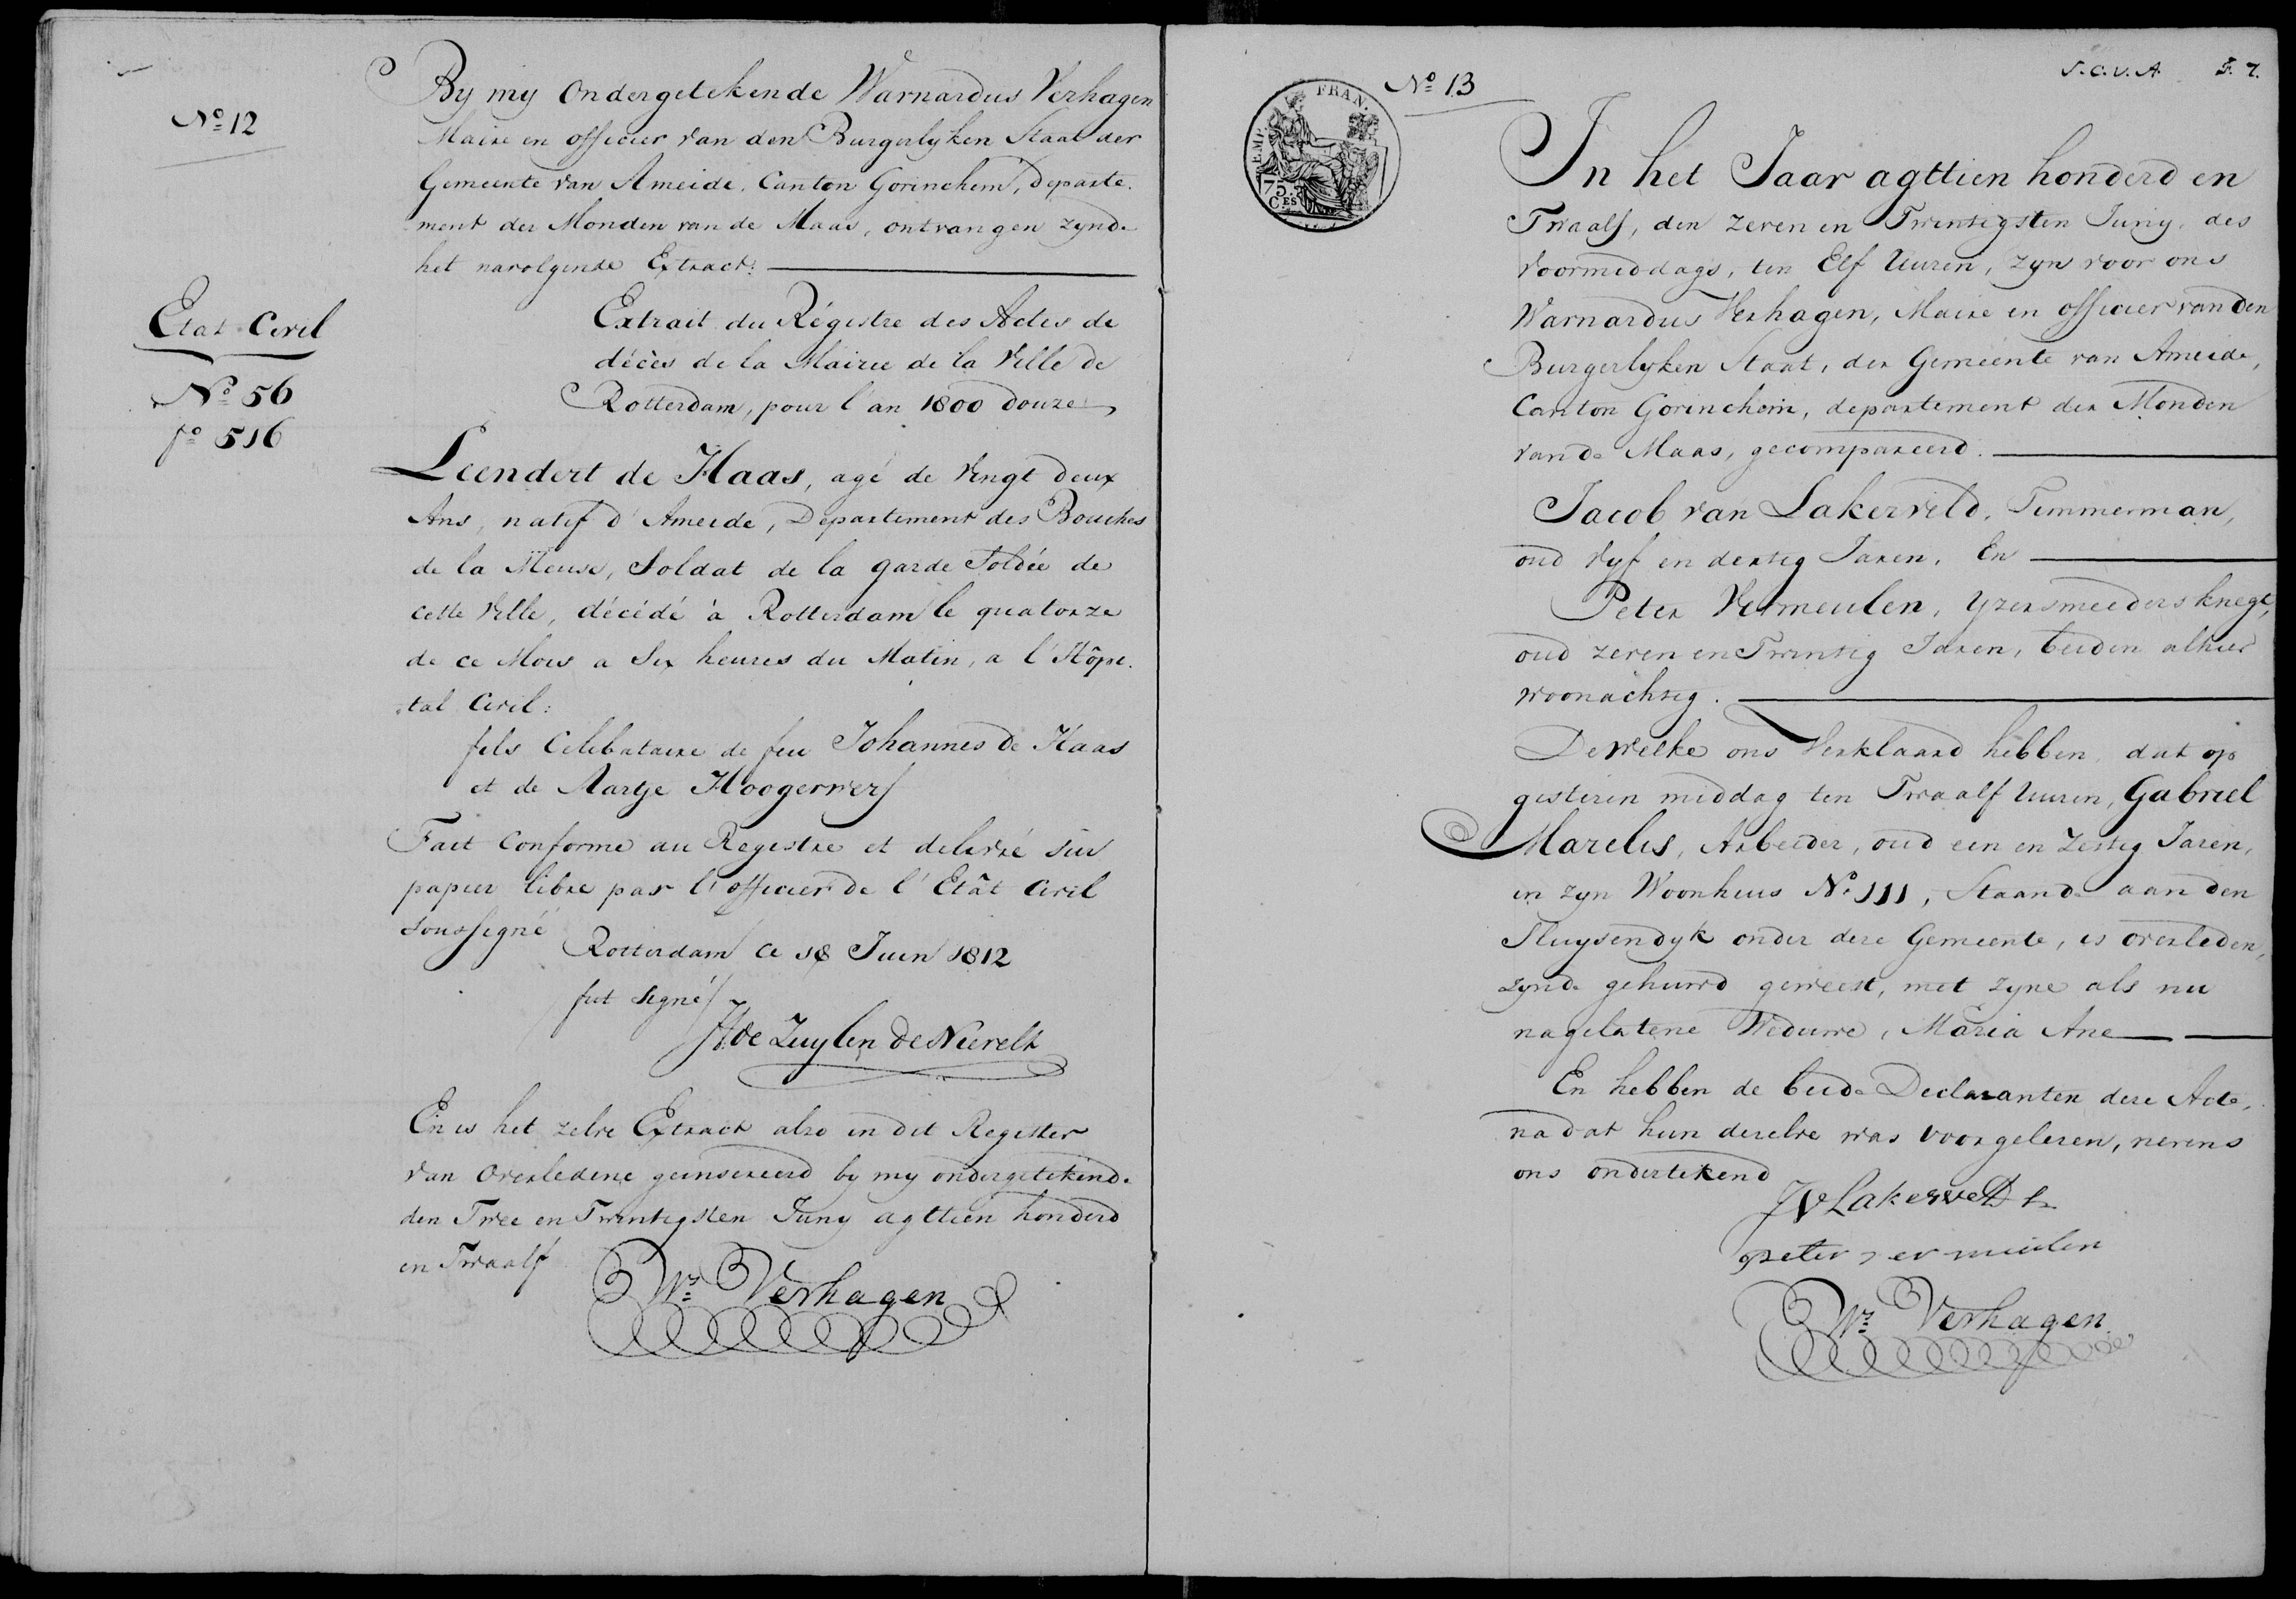 No 12
By my Ondergetekende Warnardus Verhagen
Maire en officier van den Burgerlyken Staat der
Gemeente van Ameide, Canton Gorinchem, departe-
ment der Monden van de Maas, ontvangen zynde
het navolgende Extract:
Etat Civil
No 56
fo 516
Extrait du Régistre des Actes de
décès de la Mairie de la Ville de
Rotterdam, pour l'an 1800 douze
Leendert de Haas, agé de vingt deux
Ans, natif d'Ameide, Departement des Bouches
de la Meuse, Soldat de la garde Soldée de
cette Ville, décédé à Rotterdam le quatorze
de ce Mois a Six heures du Matin, a l'Hôpi-
tal Civil:
fils Célibataire de feu Johannes de Haas
et de Aartje Hoogerwerf
Fait Conforme au Registre et delivré sur
papier libre par l'officier de l'Etât Civil
Soussigné
Rotterdam ce 18 Juin 1812
fut Signé/
de Zuylen de Nievelt
En is het zelve Extract also in dit Register
van Overledene geinsereerd by my ondergetekende
den Twee en Twintigsten Juny agttien honderd
en Twaalf
Ws Verhagen
S.C.V.A. F. 7.
No 13
EMP. FRAN.
75. CES
In het Jaar agttien honderd en
Twaalf, den zeven en Twintigsten Juny, des
voormiddags, ten Elf Uuren, zyn voor ons
Warnardus Verhagen, Maire en officier van den
Burgerlyken Staat, der Gemeente van Ameide,
Canton Gorinchem, departement der Monden
van de Maas, gecompareerd.
Jacob van Lakerveld, Timmerman,
oud Vyf en dertig Jaren, En
Peter Vermeulen, yzersmeedersknegt,
oud zeven en Twintig Jaren, beiden alhier
woonachtig.
Dewelke ons Verklaard hebben, dat op
gisteren middag ten Twaalf Uuren, Gabriel
Marelis, Arbeider, oud een en Zestig Jaren,
in zyn Woonhuis No 111, Staande aan den
Sluysendyk onder deze Gemeente, is overleden,
zynde gehuwd geweest, met zyne als nu
nagelatene Weduwe, Maria Ane
En hebben de beide Declaranten deze Acte,
na dat hun dezelve was voorgelezen, nevens
ons ondertekend
JV Lakerveld
peter vermeulen
Ws Verhagen